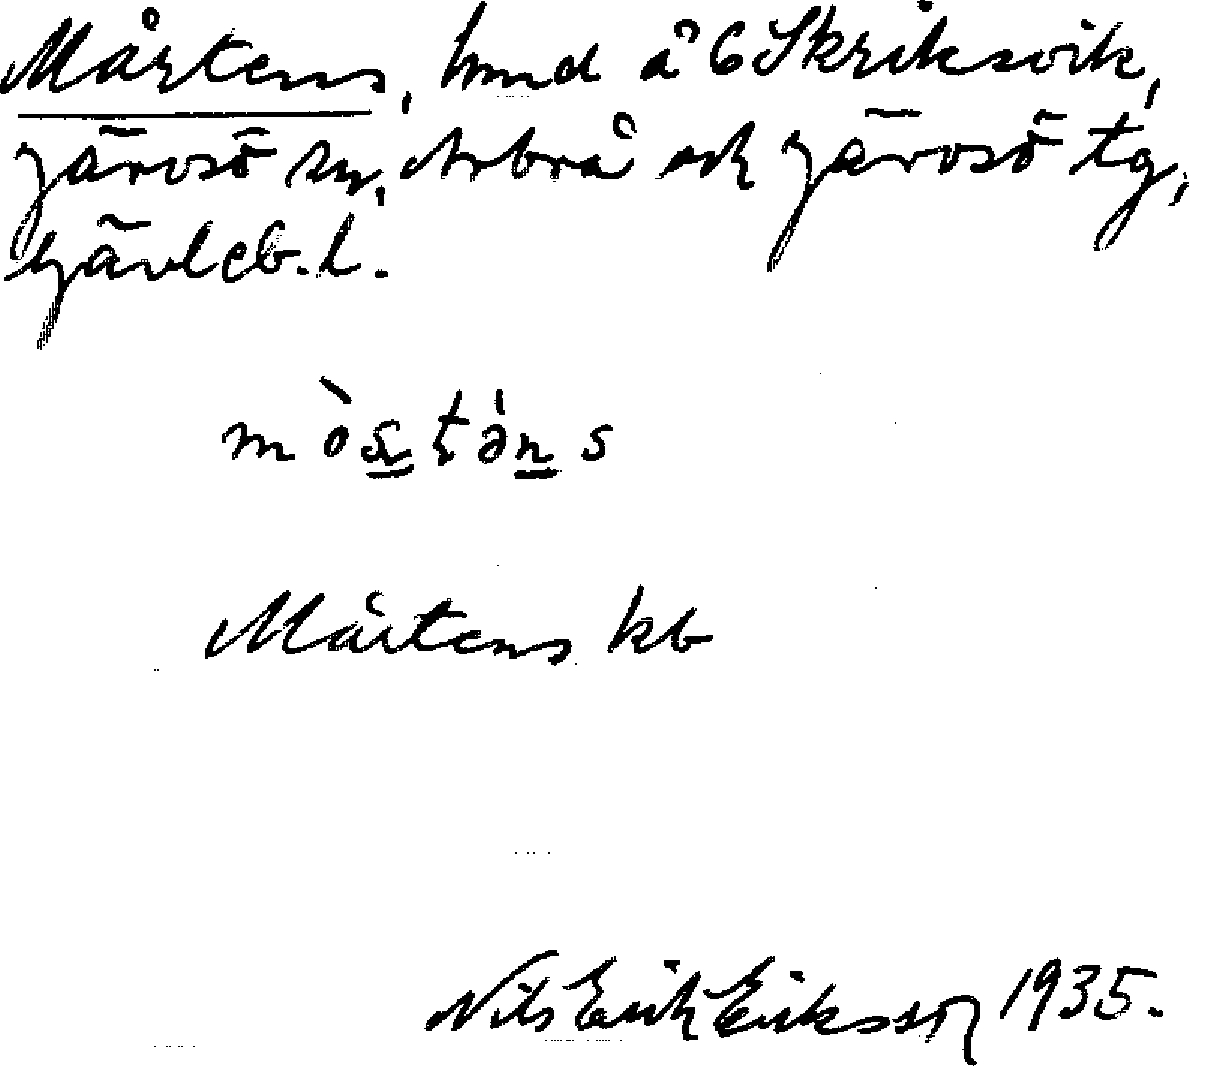 Mårtens, hmd å 6 Skriksvik,
Järvsö sn, Arbrå och Järvsö tg,
Gävleb. l.
Mårtens kb
Nils Erik Eriksson 1935.